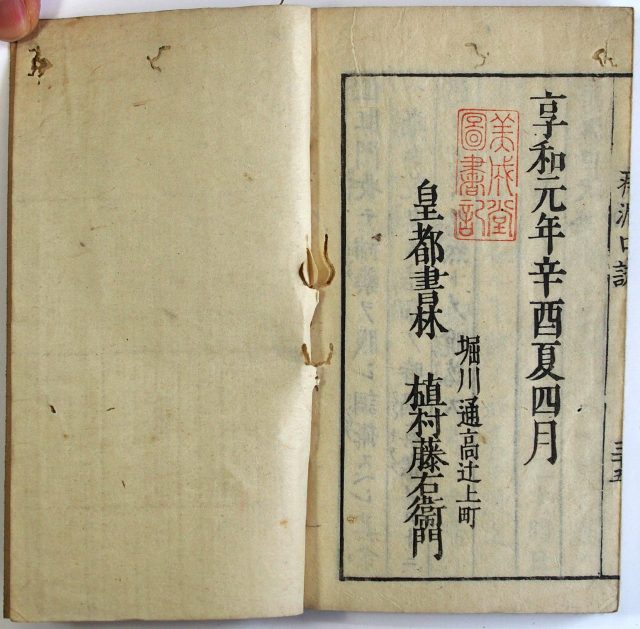 享和元年辛酉夏四月
美成堂
圖書記
堀川通高辻上町
皇都書林 植村藤右衛門